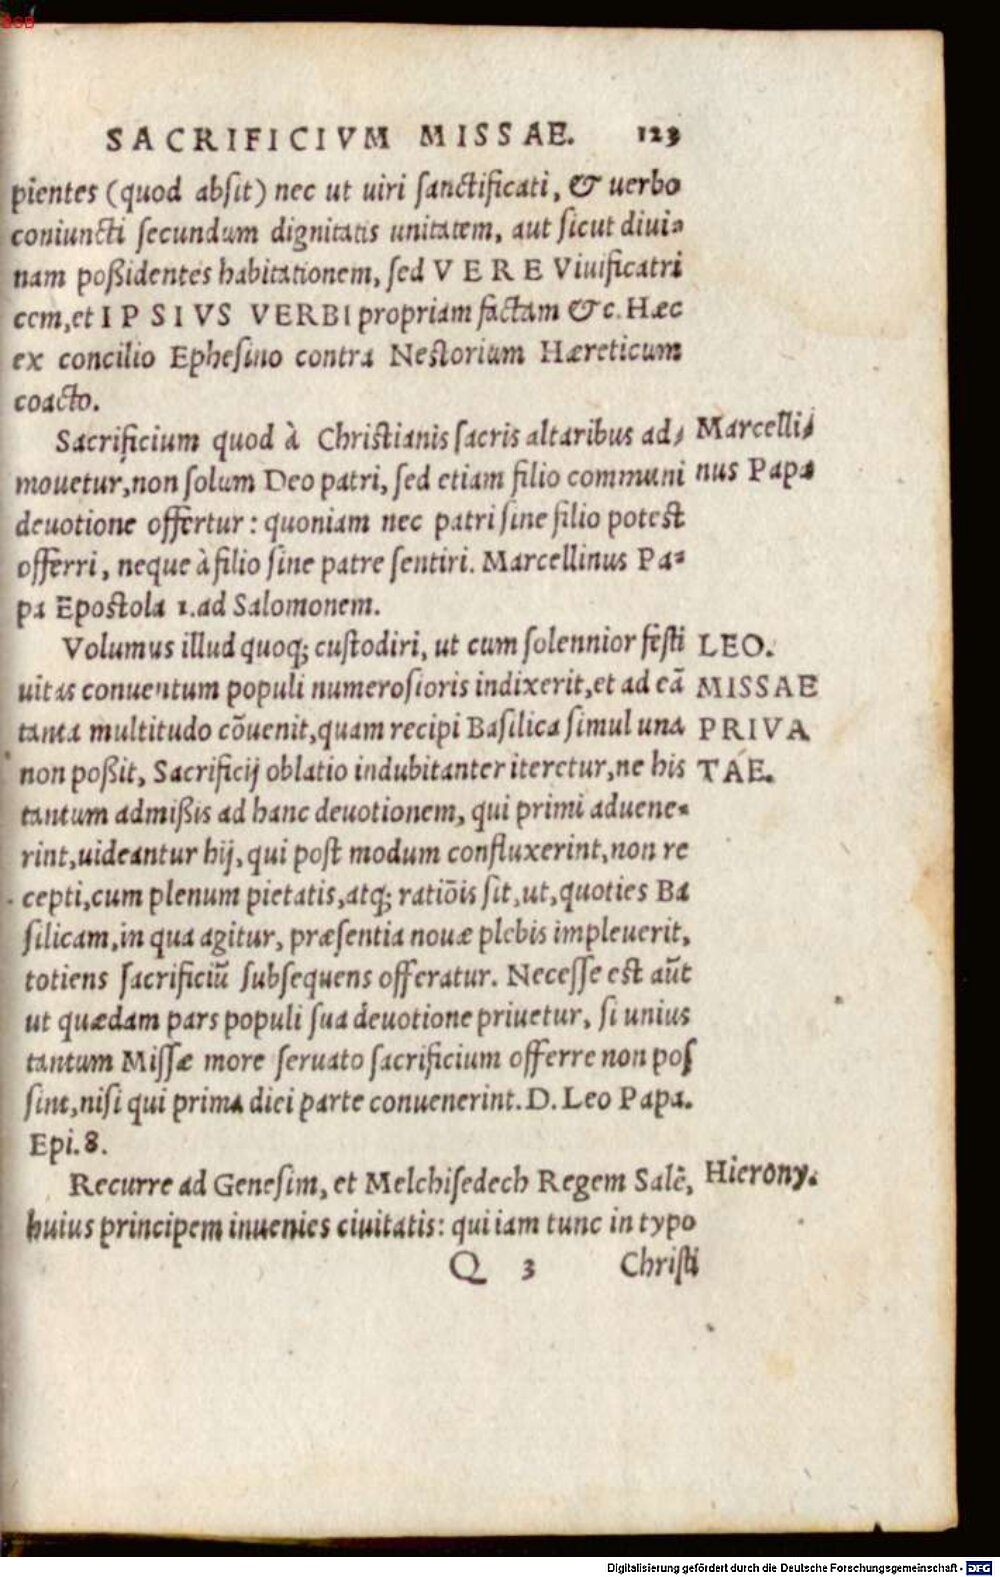 BSB
SACRIFICIVM MISSAE. 123
pientes (quod absit) nec ut uiri sanctificati, & uerbo
coniuncti secundum dignitatis unitatem, aut sicut diui-
nam poßidentes habitationem, sed VERE Viuificatri
cem, et IPSIVS VERBI propriam factam &c. Hæc
ex concilio Ephesino contra Nestorium Hæreticum
coacto.
Sacrificium quod à Christianis sacris altaribus ad-
mouetur, non solum Deo patri, sed etiam filio communi
deuotione offertur: quoniam nec patri sine filio potest
offerri, neque à filio sine patre sentiri. Marcellinus Pa-
pa Epostola 1. ad Salomonem.
Marcelli-
nus Papa
Volumus illud quoq; custodiri, ut cum solennior festi
uitas conuentum populi numerosioris indixerit, et ad eã
tanta multitudo cõuenit, quam recipi Basilica simul una
non poßit, Sacrificij oblatio indubitanter iteretur, ne his
tantum admißis ad hanc deuotionem, qui primi aduene-
rint, uideantur hij, qui post modum confluxerint, non re
cepti, cum plenum pietatis, atq; ratiõis sit, ut, quoties Ba
silicam, in qua agitur, præsentia nouæ plebis impleuerit,
totiens sacrificiũ subsequens offeratur. Necesse est aũt
ut quædam pars populi sua deuotione priuetur, si unius
tantum Missæ more seruato sacrificium offerre non pos
sint, nisi qui prima diei parte conuenerint. D. Leo Papa.
Epi. 8.
LEO.
MISSAE
PRIVA
TAE.
Recurre ad Genesim, et Melchisedech Regem Salẽ,
huius principem inuenies ciuitatis: qui iam tunc in typo
Hierony.
Q 3 Christi
Digitalisierung gefördert durch die Deutsche Forschungsgemeinschaft - DFG